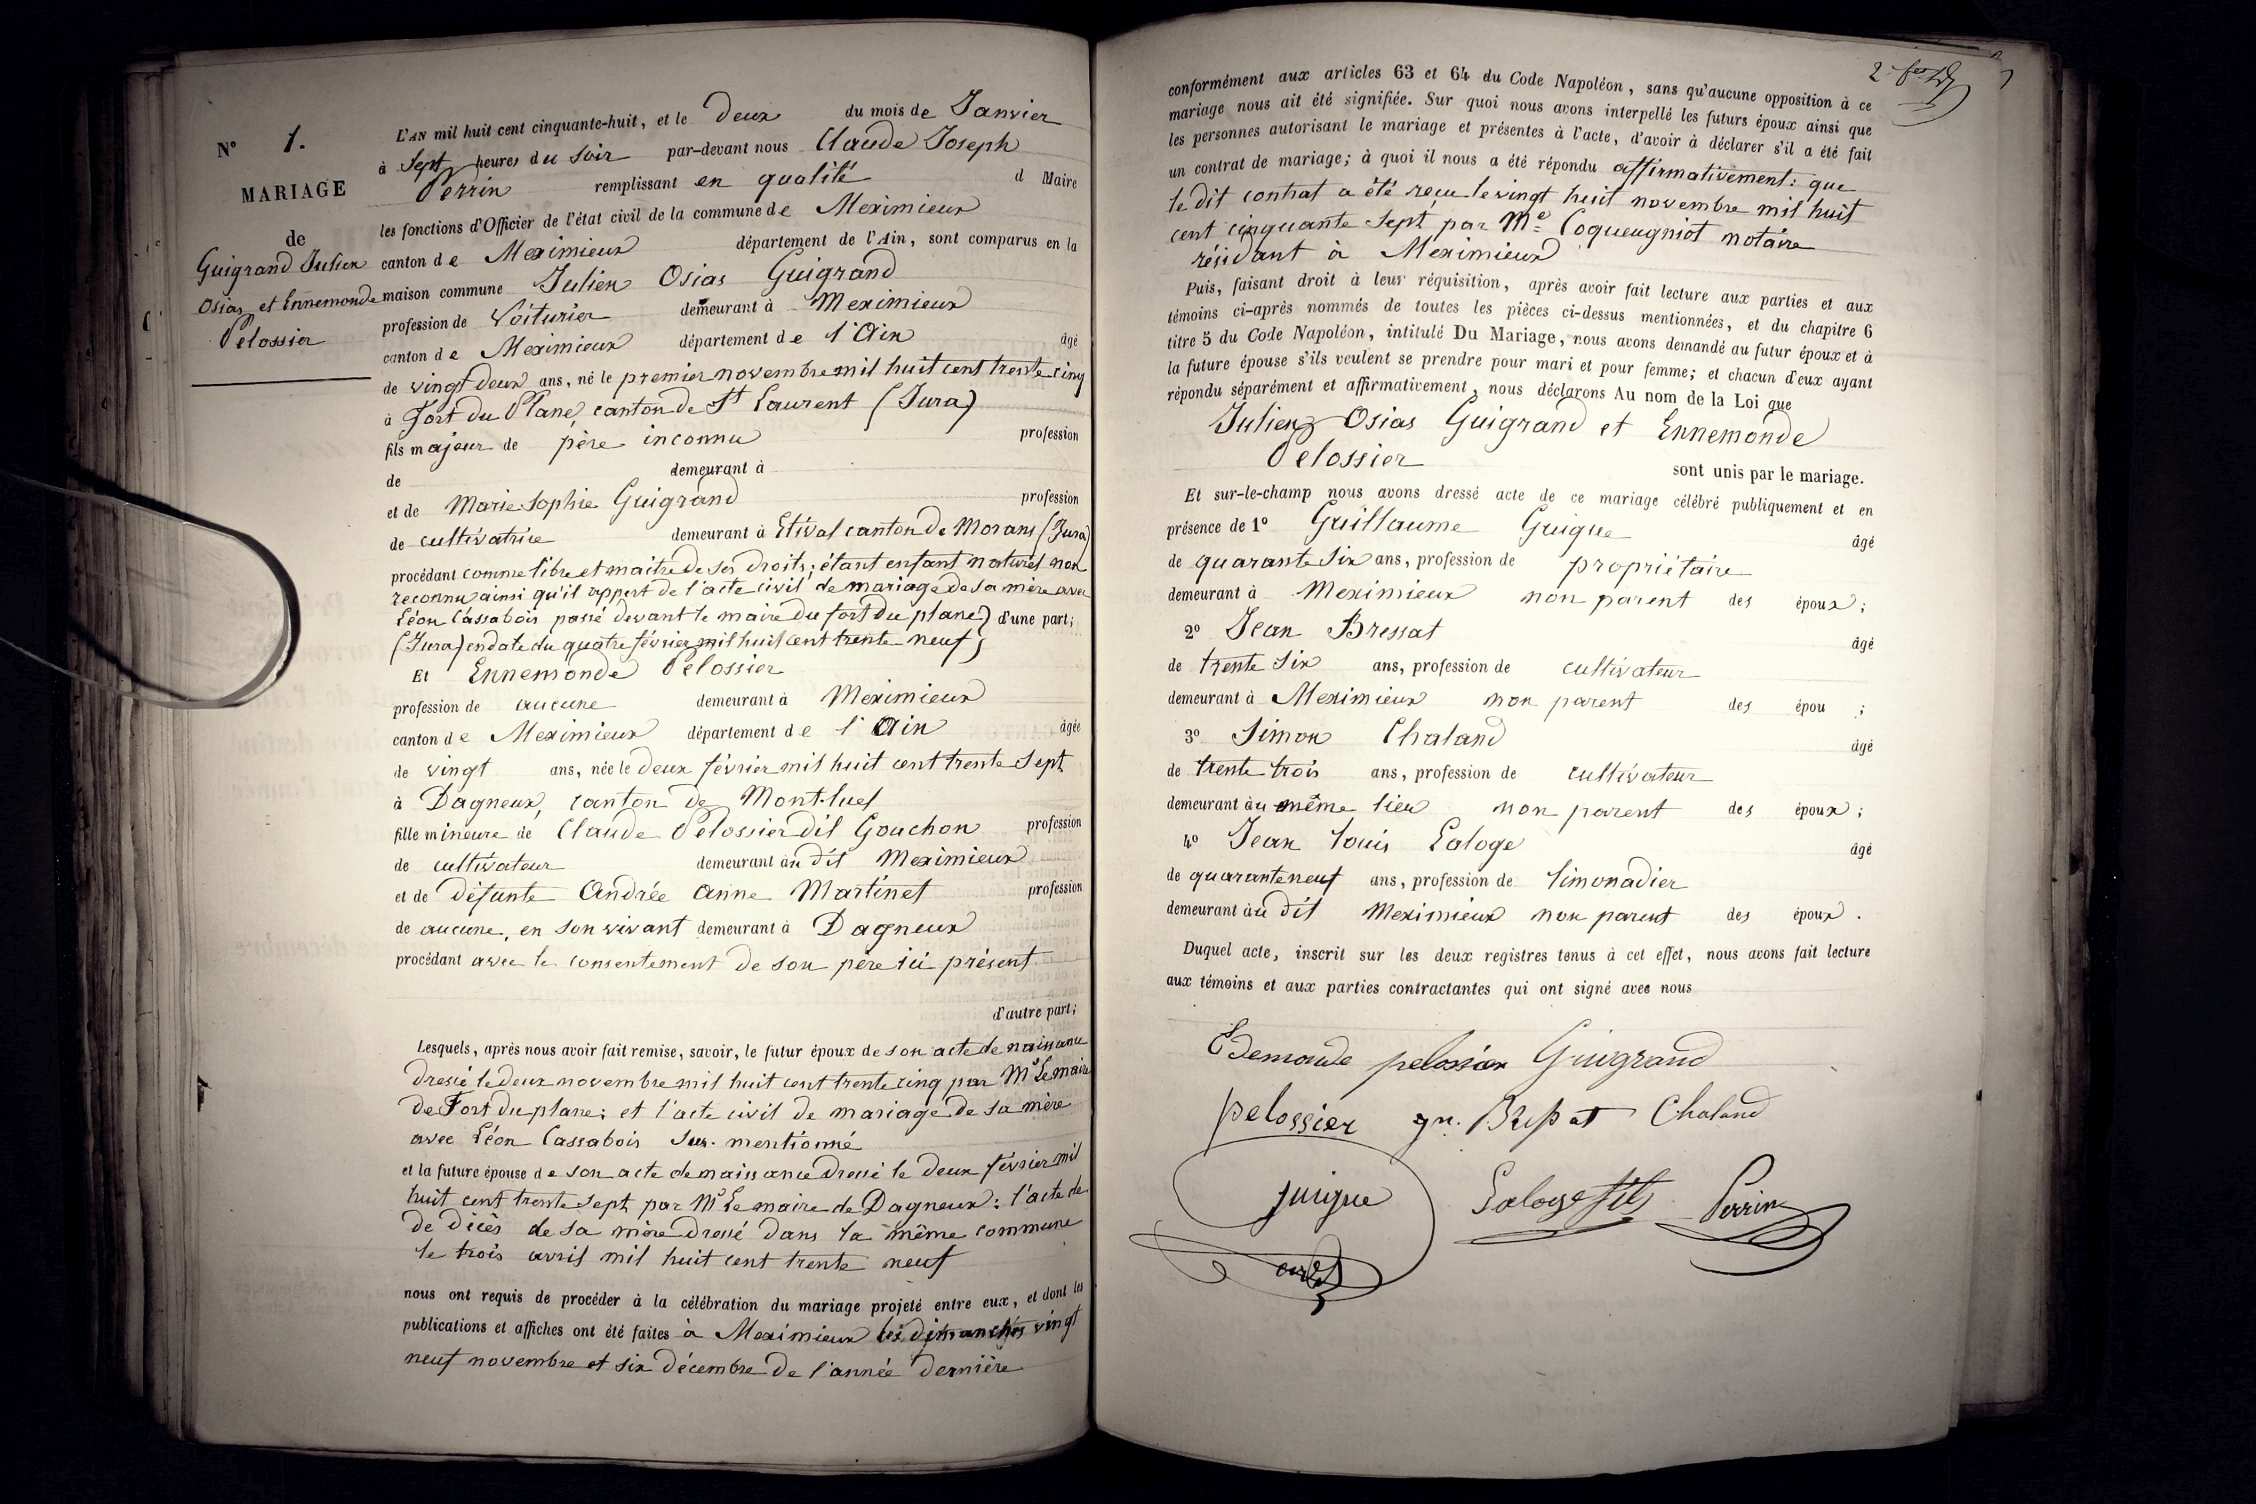 N° 1.
MARIAGE
de
Guigrand Julien
Osias et Ennemonde
Pelossier
L'AN mil huit cent cinquante-huit, et le Deux du mois de Janvier
à Sept heures du soir par-devant nous Claude Joseph
Perrin remplissant en qualité d Maire
les fonctions d'Officier de l'état civil de la commune de Meximieux
canton de Meximieux département de l'Ain, sont comparus en la
maison commune Julien Osias Guigrand
profession de Voiturier demeurant à Meximieux
canton de Meximieux département de l'Ain âgé
de vingt deux ans, né le premier novembre mil huit cent trente cinq
à Fort du Plane, canton de St Laurent (Jura)
fils majeur de père inconnu profession
de demeurant à
et de Marie Sophie Guigrand profession
de cultivatrice demeurant à Etival canton de Morans (Jura)
procédant comme libre et maitre de ses droits; étant enfant naturel non
reconnu ainsi qu'il appert de l'acte civil de mariage de sa mère avec
Léon Cassabois passé devant le maire du fort du plane) d'une part;
(Jura) en date du quatre février mil huit cent trente neuf;
Et Ennemonde Pelossier
profession de aucune demeurant à Meximieux
canton de Meximieux département de l'Ain âgée
de vingt ans, née le deux février mil huit cent trente sept
à Dagneux, canton de Montluel
fille mineure de Claude Pelossier dit Gouchon profession
de cultivateur demeurant au dit Meximieux
et de défunte Andrée Anne Martinet profession
de aucune, en son vivant demeurant à Dagneux
procédant avec le consentement de son père ici présent
d'autre part;
Lesquels, après nous avoir fait remise, savoir, le futur époux de son acte de naissance
dressé le deux novembre mil huit cent trente cinq par Mr Le maire
de Fort du plane; et l'acte civil de mariage de sa mère
avec Léon Cassabois sus-mentionné
et la future épouse de son acte de naissance dressé le deux février mil
huit cent trente sept par Mr Le maire de Dagneux: l'acte de
de décès de sa mère dressé dans la même commune
le trois avril mil huit cent trente neuf
nous ont requis de procéder à la célébration du mariage projeté entre eux, et dont les
publications et affiches ont été faites à Meximieux les dimanches vingt
neuf novembre et six décembre de l'année dernière
conformément aux articles 63 et 64 du Code Napoléon, sans qu'aucune opposition à ce
mariage nous ait été signifiée. Sur quoi nous avons interpellé les futurs époux ainsi que
les personnes autorisant le mariage et présentes à l'acte, d'avoir à déclarer s'il a été fait
un contrat de mariage; à quoi il nous a été répondu affirmativement: que
le dit contrat a été reçu le vingt huit novembre mil huit
cent cinquante sept par Me Coqueugniot notaire
résidant à Meximieux
Puis, faisant droit à leur réquisition, après avoir fait lecture aux parties et aux
témoins ci-après nommés de toutes les pièces ci-dessus mentionnées, et du chapitre 6
titre 5 du Code Napoléon, intitulé Du Mariage, nous avons demandé au futur époux et à
la future épouse s'ils veulent se prendre pour mari et pour femme; et chacun d'eux ayant
répondu séparément et affirmativement, nous déclarons Au nom de la Loi que
Julien Osias Guigrand et Ennemonde
Pelossier sont unis par le mariage.
Et sur-le-champ nous avons dressé acte de ce mariage célébré publiquement et en
présence de 1° Guillaume Guigue âgé
de quarante six ans, profession de propriétaire
demeurant à Meximieux non parent des époux;
2° Jean Bressat âgé
de trente six ans, profession de cultivateur
demeurant à Meximieux non parent des épou ;
3° Simon Chaland âgé
de trente trois ans, profession de cultivateur
demeurant au même lieu non parent des époux;
4° Jean Louis Laloge âgé
de quarante neuf ans, profession de limonadier
demeurant au dit Meximieux non parent des époux.
Duquel acte, inscrit sur les deux registres tenus à cet effet, nous avons fait lecture
aux témoins et aux parties contractantes qui ont signé avec nous
Edemonde pelossier Guigrand
pelossier Chaland
guigue Laloge fils Perrin